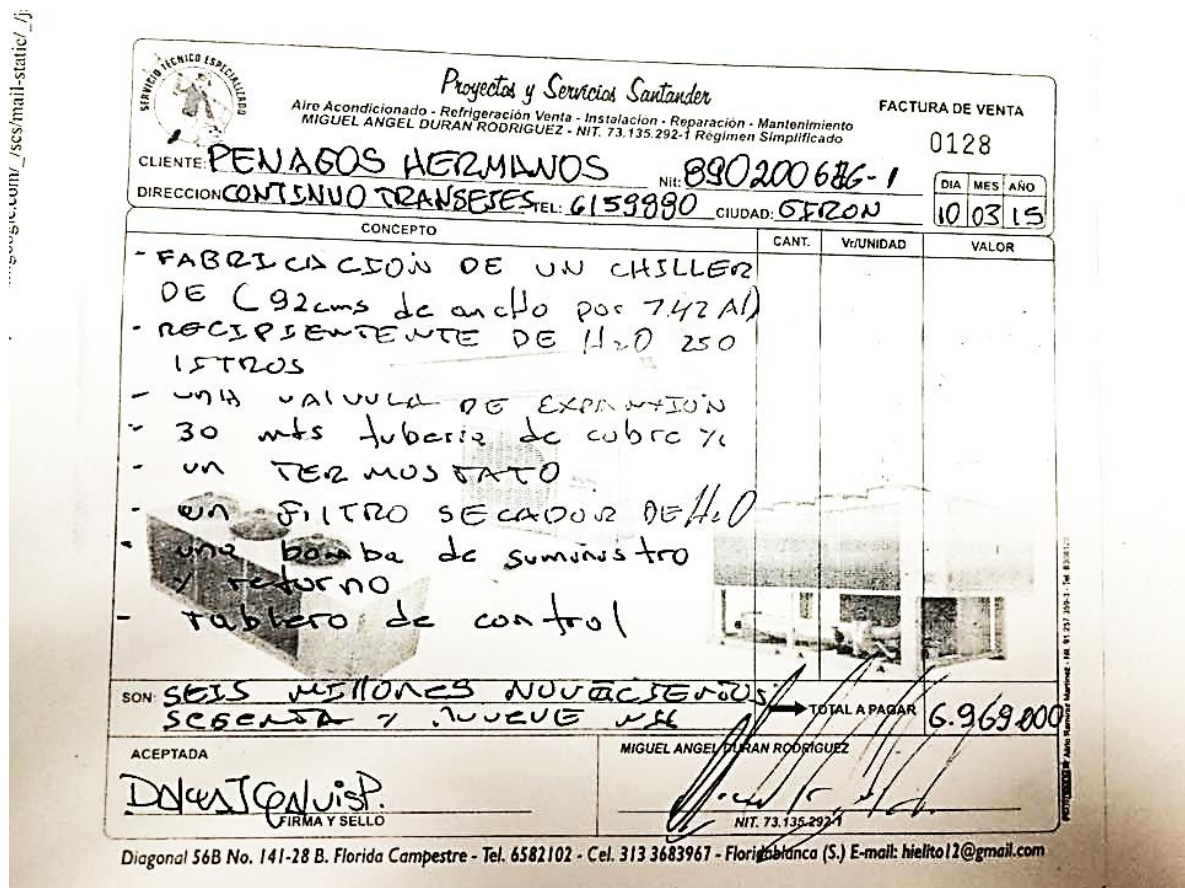 /_scs/mail-static/_/j
SERVICIO TECNICO ESPECIALIZADO
Proyectos y Servicios Santander
Aire Acondicionado - Refrigeración Venta - Instalación - Reparación - Mantenimiento
MIGUEL ANGEL DURAN RODRIGUEZ - NIT. 73.135.292-1 Régimen Simplificado
FACTURA DE VENTA
0128
CLIENTE: PENAGOS HERMANOS Nit: 890200686-1
DIRECCION CONTINUO TRANSEJES TEL: 6159890 CIUDAD: GIRON
DIA MES AÑO
10 03 15
CONCEPTO CANT. Vr/UNIDAD VALOR
- FABRICACION DE UN CHILLER
DE (92cms de ancho por 7.42 Al)
- RECIPIENTENTE DE H2O 250
LITROS
- UNA VALVULA DE EXPANXION
- 30 mts tuberia de cobre
- UN TERMOSTATO
- un FILTRO SECADOR DE H2O
- una bomba de suministro
y retorno
- Tablero de control
SON: SEIS MILLONES NOVECIENTOS
SESENTA Y NUEVE MIL
TOTAL A PAGAR 6.969.000
ACEPTADA
FIRMA Y SELLO
MIGUEL ANGEL DURAN RODRIGUEZ
NIT. 73.135.292-1
Diagonal 56B No. 141-28 B. Florida Campestre - Tel. 6582102 - Cel. 313 3683967 - Floridablanca (S.) E-mail: hielito12@gmail.com